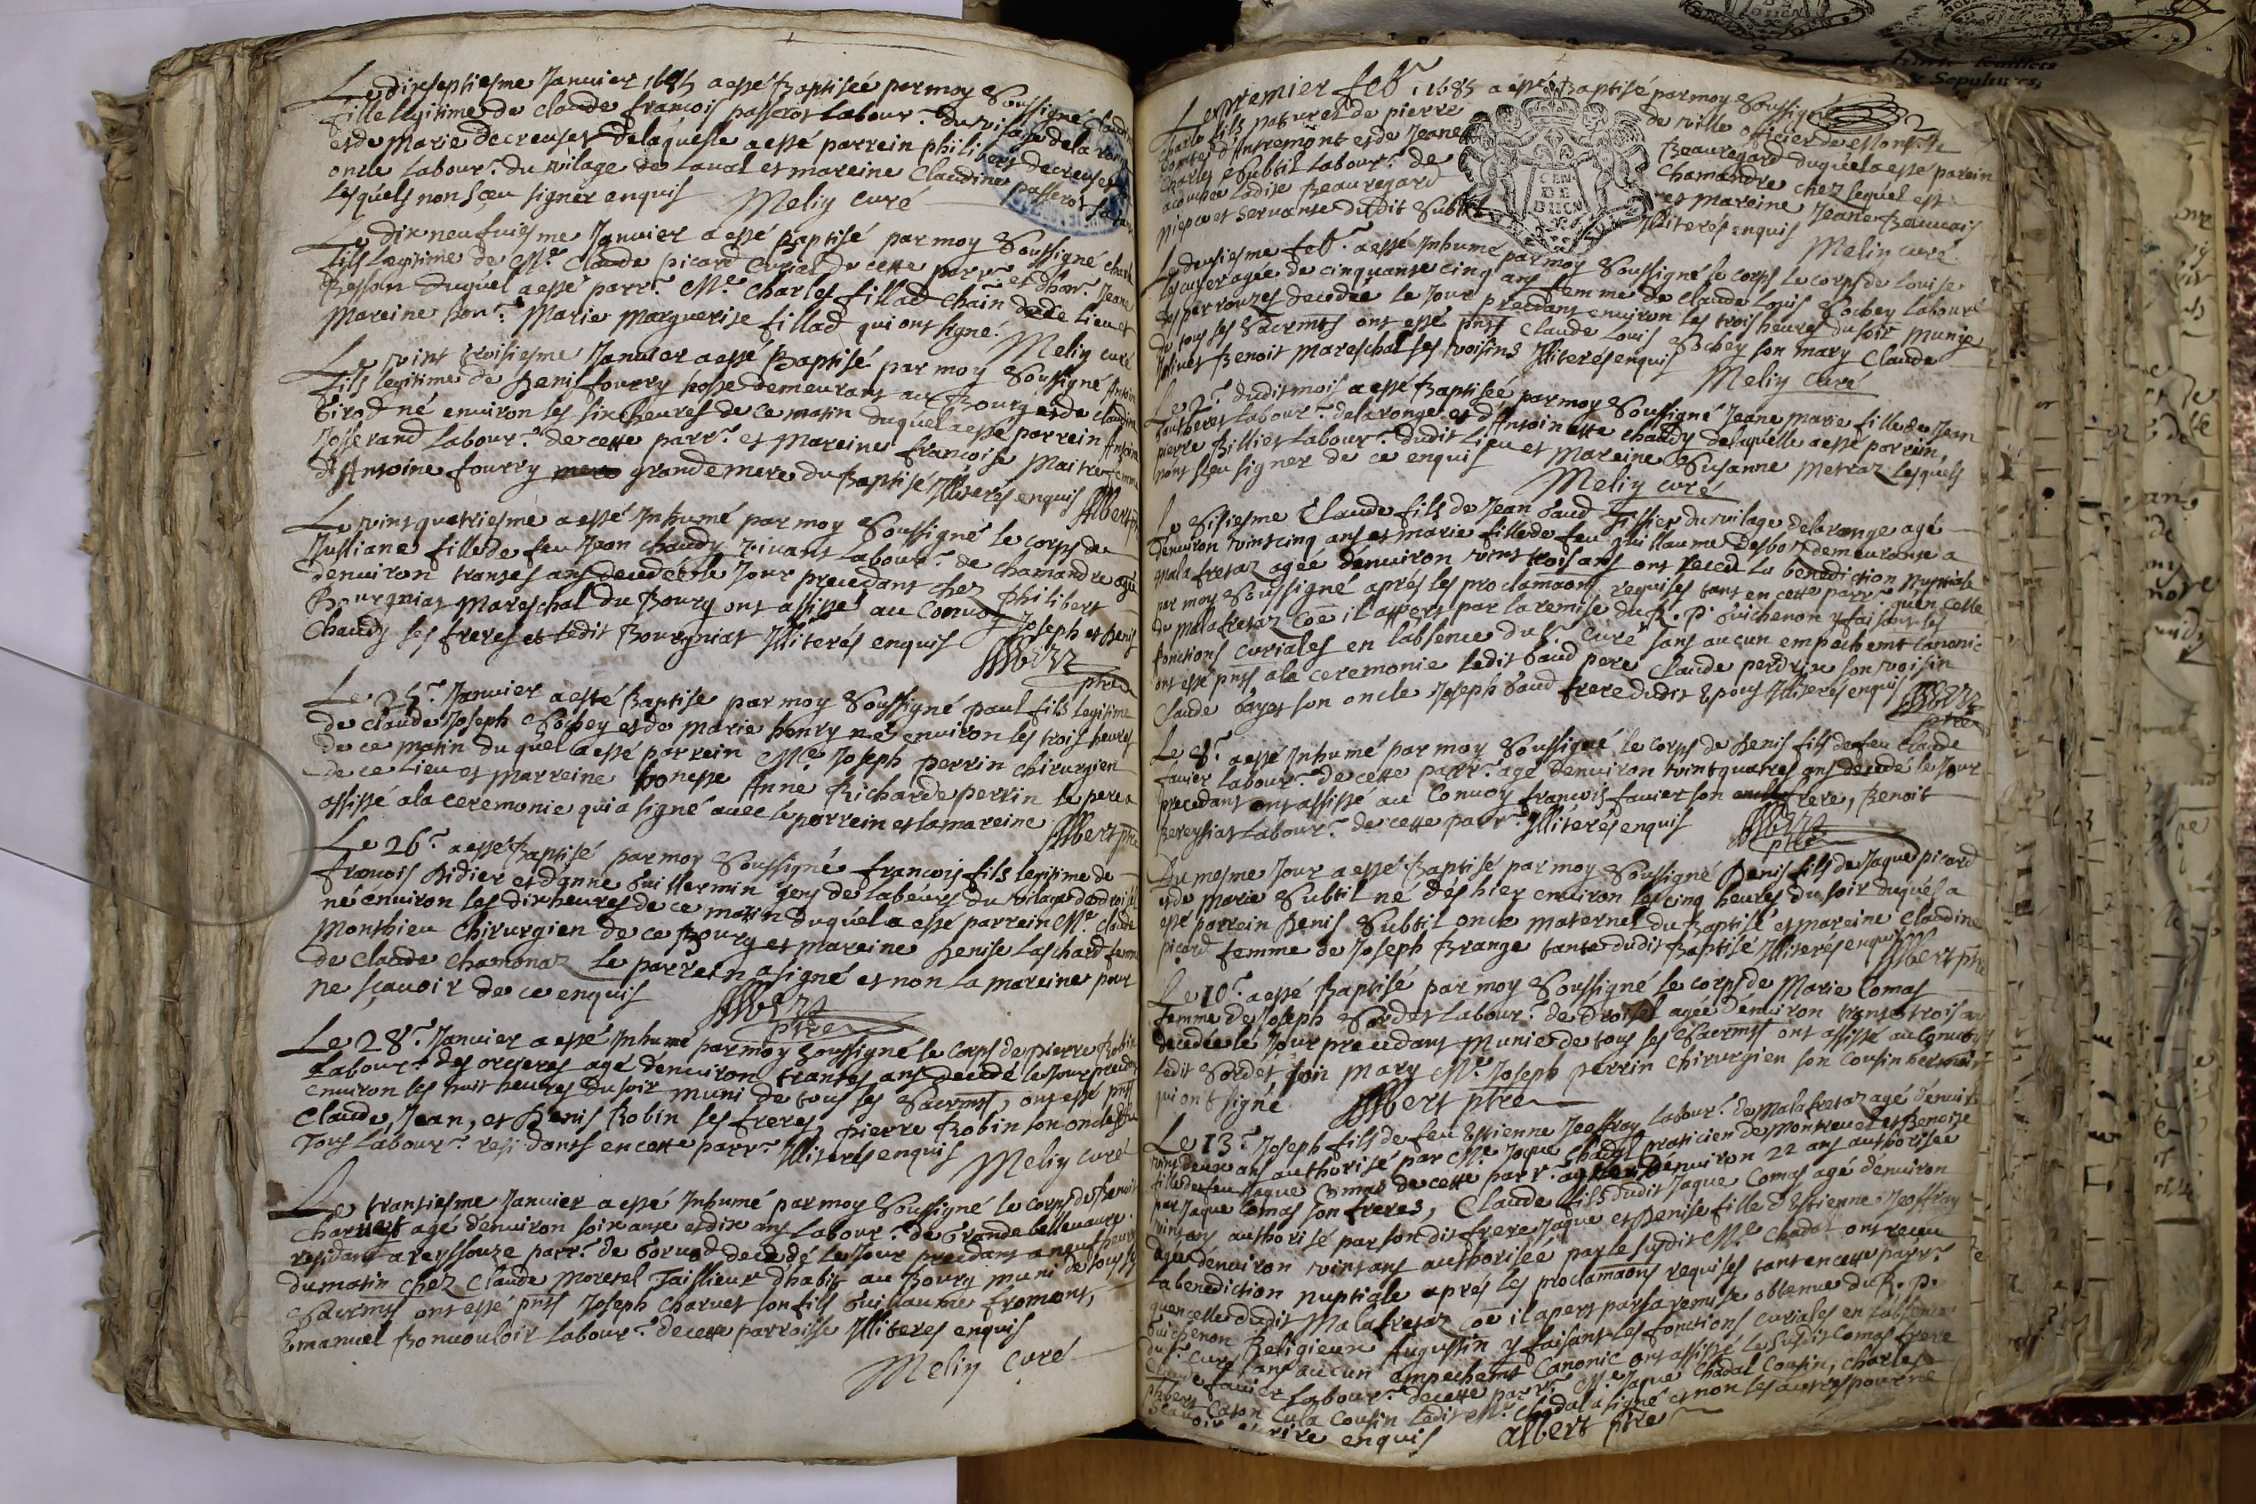 Le dixseptiesme Janvier 1685 a esté Baptisée par moy Soussigné Claud
fille legitime de Claude francois passerot Labour.r du vilage de la ronge
et de Marie decreuset delaquelle a esté parrein philibert decreuset
oncle Labour.r du vilage de Laval et mareine Claudine passerot
Lesquels non sceu signer enquis Meliy curé
Le dix neufuiesme Janvier a esté Baptisé par moy Soussigné Charle
fils legitime de M.e Claude picard Curial de cette parr.e et d'hon.e Jeane
Besson duquel a esté parr.n M.e Charles fillad chain dudit Lieu et
Mareine hon.e Marie Marguerite fillad qui ont signé. Meliy curé
Le vint troisiesme Janvier a esté Baptisé par moy Soussigné Antoin
fils legitime de Denis fourry hoste demeurant au Bourg et de Claudine
Girod né environ les six heures de ce matin duquel a esté parrein Antoine
Josserand Labour.r de cette parr.e et Mareine francoise Maitre femme
d'Antoine fourry grandemere du Baptisé Illiterés enquis Albert ptre
Le vint quatriesme a esté Inhumé par moy Soussigné le corps de
Jullianne fille de feu Jean Chaudy vivant Labour.r de Chamandre agée
denviron trantes ans decedée le Jour precedant chez philibert
Bourgniat Mareschal du Bourg ont assisté au Convoy Joseph et Denis
Chaudy ses freres et ledit Bourgniat Illiterés enquis
Albert ptre
Le 25.e Janvier a esté Baptisé par moy Soussigné paul fils legitime
de Claude Joseph Sochey et de Marie henry né environ les trois heures
de ce matin duquel a esté parrein M.e Joseph perrin chirurgien
de ce lieu et Marreine honeste Anne Richarde perrin le pere a
assisté a la ceremonie qui a signé avec le parrein et la mareine Albert ptre
Le 26.e a esté Baptisé par moy Soussigné francois fils legitime de
francois Didier et d'anne Guillermin gens de Labeurs du vilage de droisel
né environ les dix heures de ce matin duquel a esté parrein M.e Claude
Monthieu Chirurgien de ce Bourg et mareine Denise Laschard femme
de Claude Chamonaz Le parrein a signé et non la mareine pour
ne sçavoir de ce enquis Albert
ptre
Le 28.e Janvier a esté Inhumé par moy Soussigné le corps de pierre Robin
Labour.r des orcieres agé denviron trantes ans decedé le Jour precedt
environ les huit heures du soir muni de tous les Sacrmts, ont esté pnts
Claude, Jean, et Denis Robin ses freres, pierre Robin son oncle
Tous Labour.r residants en cette parr.e Illiteres enquis
Meliy curé
Le trantiesme Janvier a esté Inhumé par moy Soussigné le corps de Benoit
Charuet agé denviron soixante et dix ans Labour.r de Grande bellevavre
residant a reyssouze parr.e de Goruod decedé le Jour precedant a neuf heures
du matin chez Claude Moretel Taillieur d'habit au Bourg muni de tous les
Sacrmts ont esté pnts Joseph Charuet son fils Guillaume froment,
Emanuel Bonuouloir Labour.r de cette parroisse Illiteres enquis
Meliy curé
Le premier feb.r 1685 a esté Baptisé par moy Soussigné
Charle fils naturel de pierre de ville officier de
Comte d'Antremont et de Jeane Beauregard duquel a esté parein
Charles Subtil Labour.r de Chamandre chez lequel est
acouchée ladite Beauregard et Mareine Jeane Beauvais
niepce et servante dudit Subtil Illiterés enquis
Meliy curé
Le deusiesme feb.r a esté Inhumé par moy Soussigné le corps de Louise
Lescuyer agée de cinquante cinq ans femme de Claude Louis Sochey Labour.r
des perrouzes decedée le Jour precedant environ les trois heures du soir munie
de tous les Sacrmts ont esté pnts Claude Louis Sochey son mary Claude
Benoit Mareschal ses voisins Illiterés enquis Meliy curé
Le dudit mois a esté Baptisée par moy Soussigné Jeane Marie fille de Jean
Gautheret Labour.r de la ronge et d'Antoinette Chaudy delaquelle a esté parrein,
pierre Billiet Labour.r dudit Lieu et Mareine Susanne Metraz Lesquels
n'ont sceu signer de ce enquis Meliy curé
Le Sisiesme Claude fils de Jean Gaud Tissier du vilage de la ronge agé
denviron vint cinq ans et marie fille de feu Guillaume Desbos demeurante a
Malafretaz agée denviron vint trois ans ont receu la benediction Nuptiale
par moy Soussigné aprés les proclamaons requises tant en cette parr.e qu'en celle
de Malafretaz coe il appert par la remise du R. P. Guichenon y faisant les
fonctions curiales en labsence du S.r Curé sans aucun empechemt canonic
ont esté pnts a la ceremonie ledit Gaud pere Claude perdrix son voisin
Claude Gayot son oncle Joseph Gaud frere dudit Epous Illiteres enquis Albert
ptre
Le 8.e a esté Inhumé par moy Soussigné le corps de Denis fils de feu Claude
favier Labour.r de cette parr.e agé denviron vint quatres ans decedé le Jour
precedant ont assisté au Convoy francois favier son frere, Benoit
Bereyziat Labour.r de cette parr.e Illiterés enquis Albert
ptre
Du mesme Jour a esté Baptisé par moy Soussigné Denis fils de Jaque picard
et de Marie Subtil né des hier environ les cinq heures du soir duquel a
esté parrein Denis Subtil oncle maternel du Baptisé et mareine Claudine
picard femme de Joseph Brange tante dudit Baptisé Illiterés enquis Albert ptre
Le 10.e a esté Baptisé par moy Soussigné le corps de Marie Comas
femme de Joseph Sordet Labour.r de Droisel agée denviron trante trois ans
decedée le Jour precedant munie de tous les Sacrmts ont assisté au Convoy
ledit Sordet son mary M.e Joseph perrin chirurgien son Cousin germain
qui ont signé Albert ptre
Le 13.e Joseph fils de feu Estienne Jeoffray Labour.r de Malafretaz agé denviron
vint deux ans authorisé par M.e Jaque Chadal praticien de Montrevel et Benoite
fille de feu Jaque Comas de cette parr.e agée denviron 22 ans authorisée
par Jaque Comas son freres, Claude fils dudit Jaque Comas agé denviron
vint ans authorisé par son dit frere Jaque et Denise fille d'Estienne Jeoffray
agée denviron vint ans authorisée par le susdit M.e Chadal ont receu
la benediction nuptiale aprés les proclamaons requises tant en cette parr.e
quen celle dudit Malafretaz coe il apert par la remise obtenue du R. P.
Guichenon Religieux Augustin y faisant les fonctions curiales en labsence
du S.r Curé sans aucun empechemt Canonic ont assisté le susdit Comas frere
Claude favier Labour.r de cette parr.e M.e Jaque Chadal Cousin, Charles
Cousin ledit M.e Chadal a signé et non les autres pour ne
Scavoir écrire enquis albert ptre